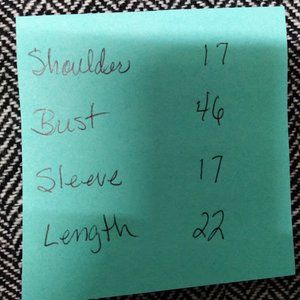 Shoulder 17
Bust 46
Sleeve 17
Length 22